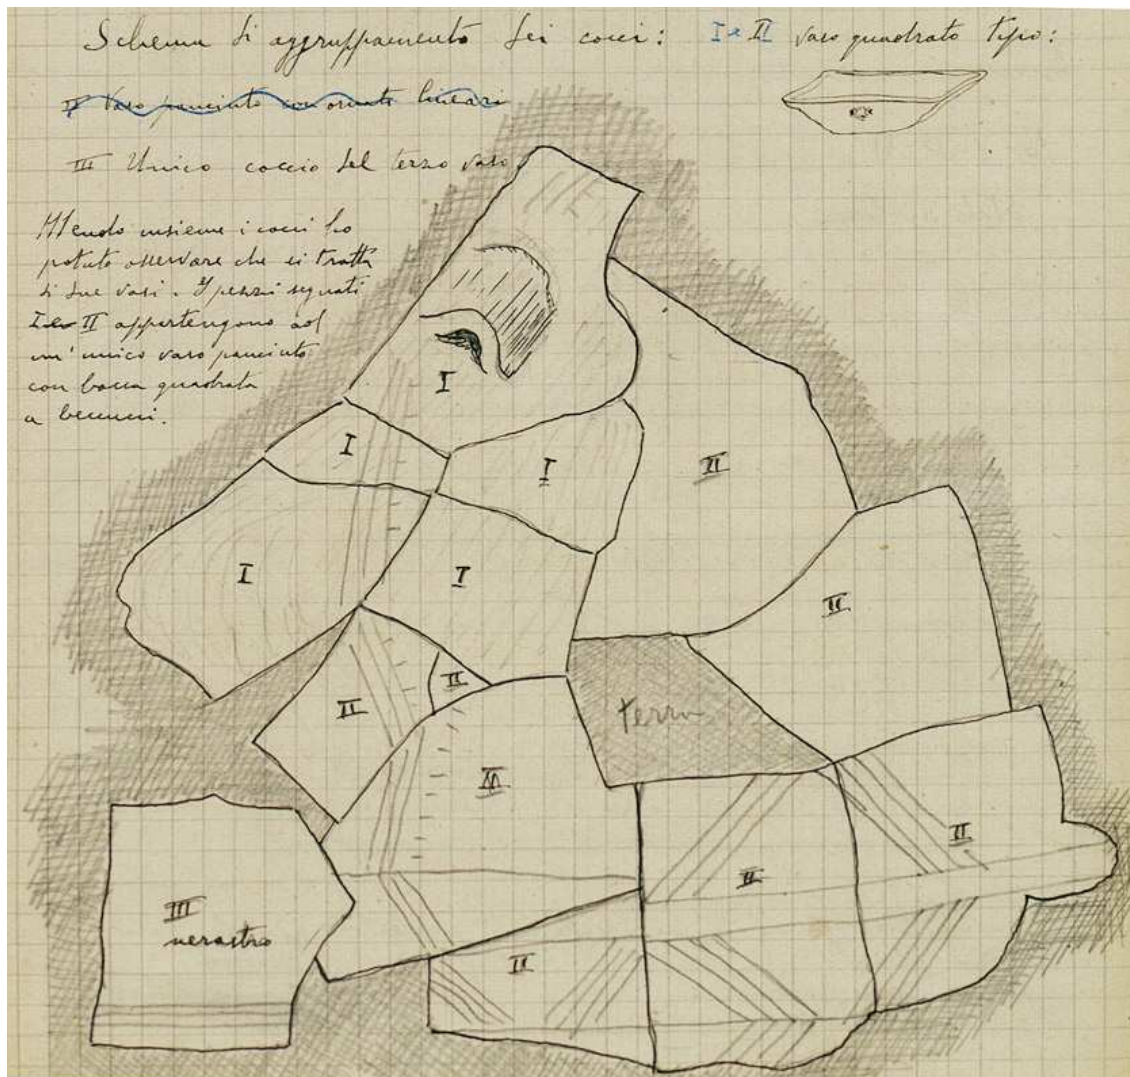 Schema di aggruppamento dei cocci: I e II vaso quadrato tipo:
II Vaso panciuto con ornato lineari
III Unico coccio del terzo vaso
Mettendo insieme i cocci ho
potuto osservare che si tratta
di due vasi. I pezzi segnati
I e II appartengono ad
un'unico vaso panciuto
con bocca quadrata
a beccucci.
I
I
I
II
I
I
II
II
II
terra
II
II
II
III
nerastro
II